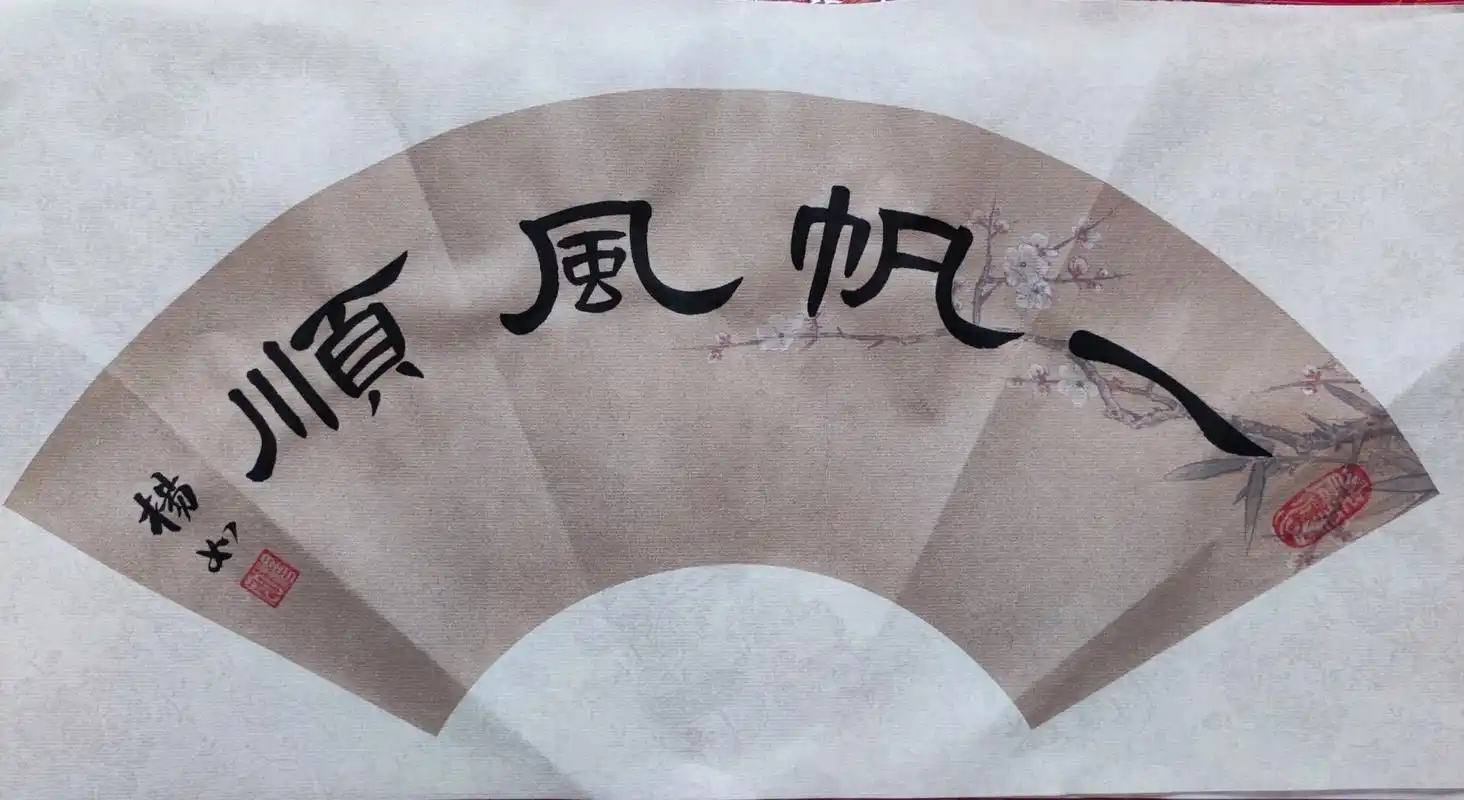 一帆風順
楊